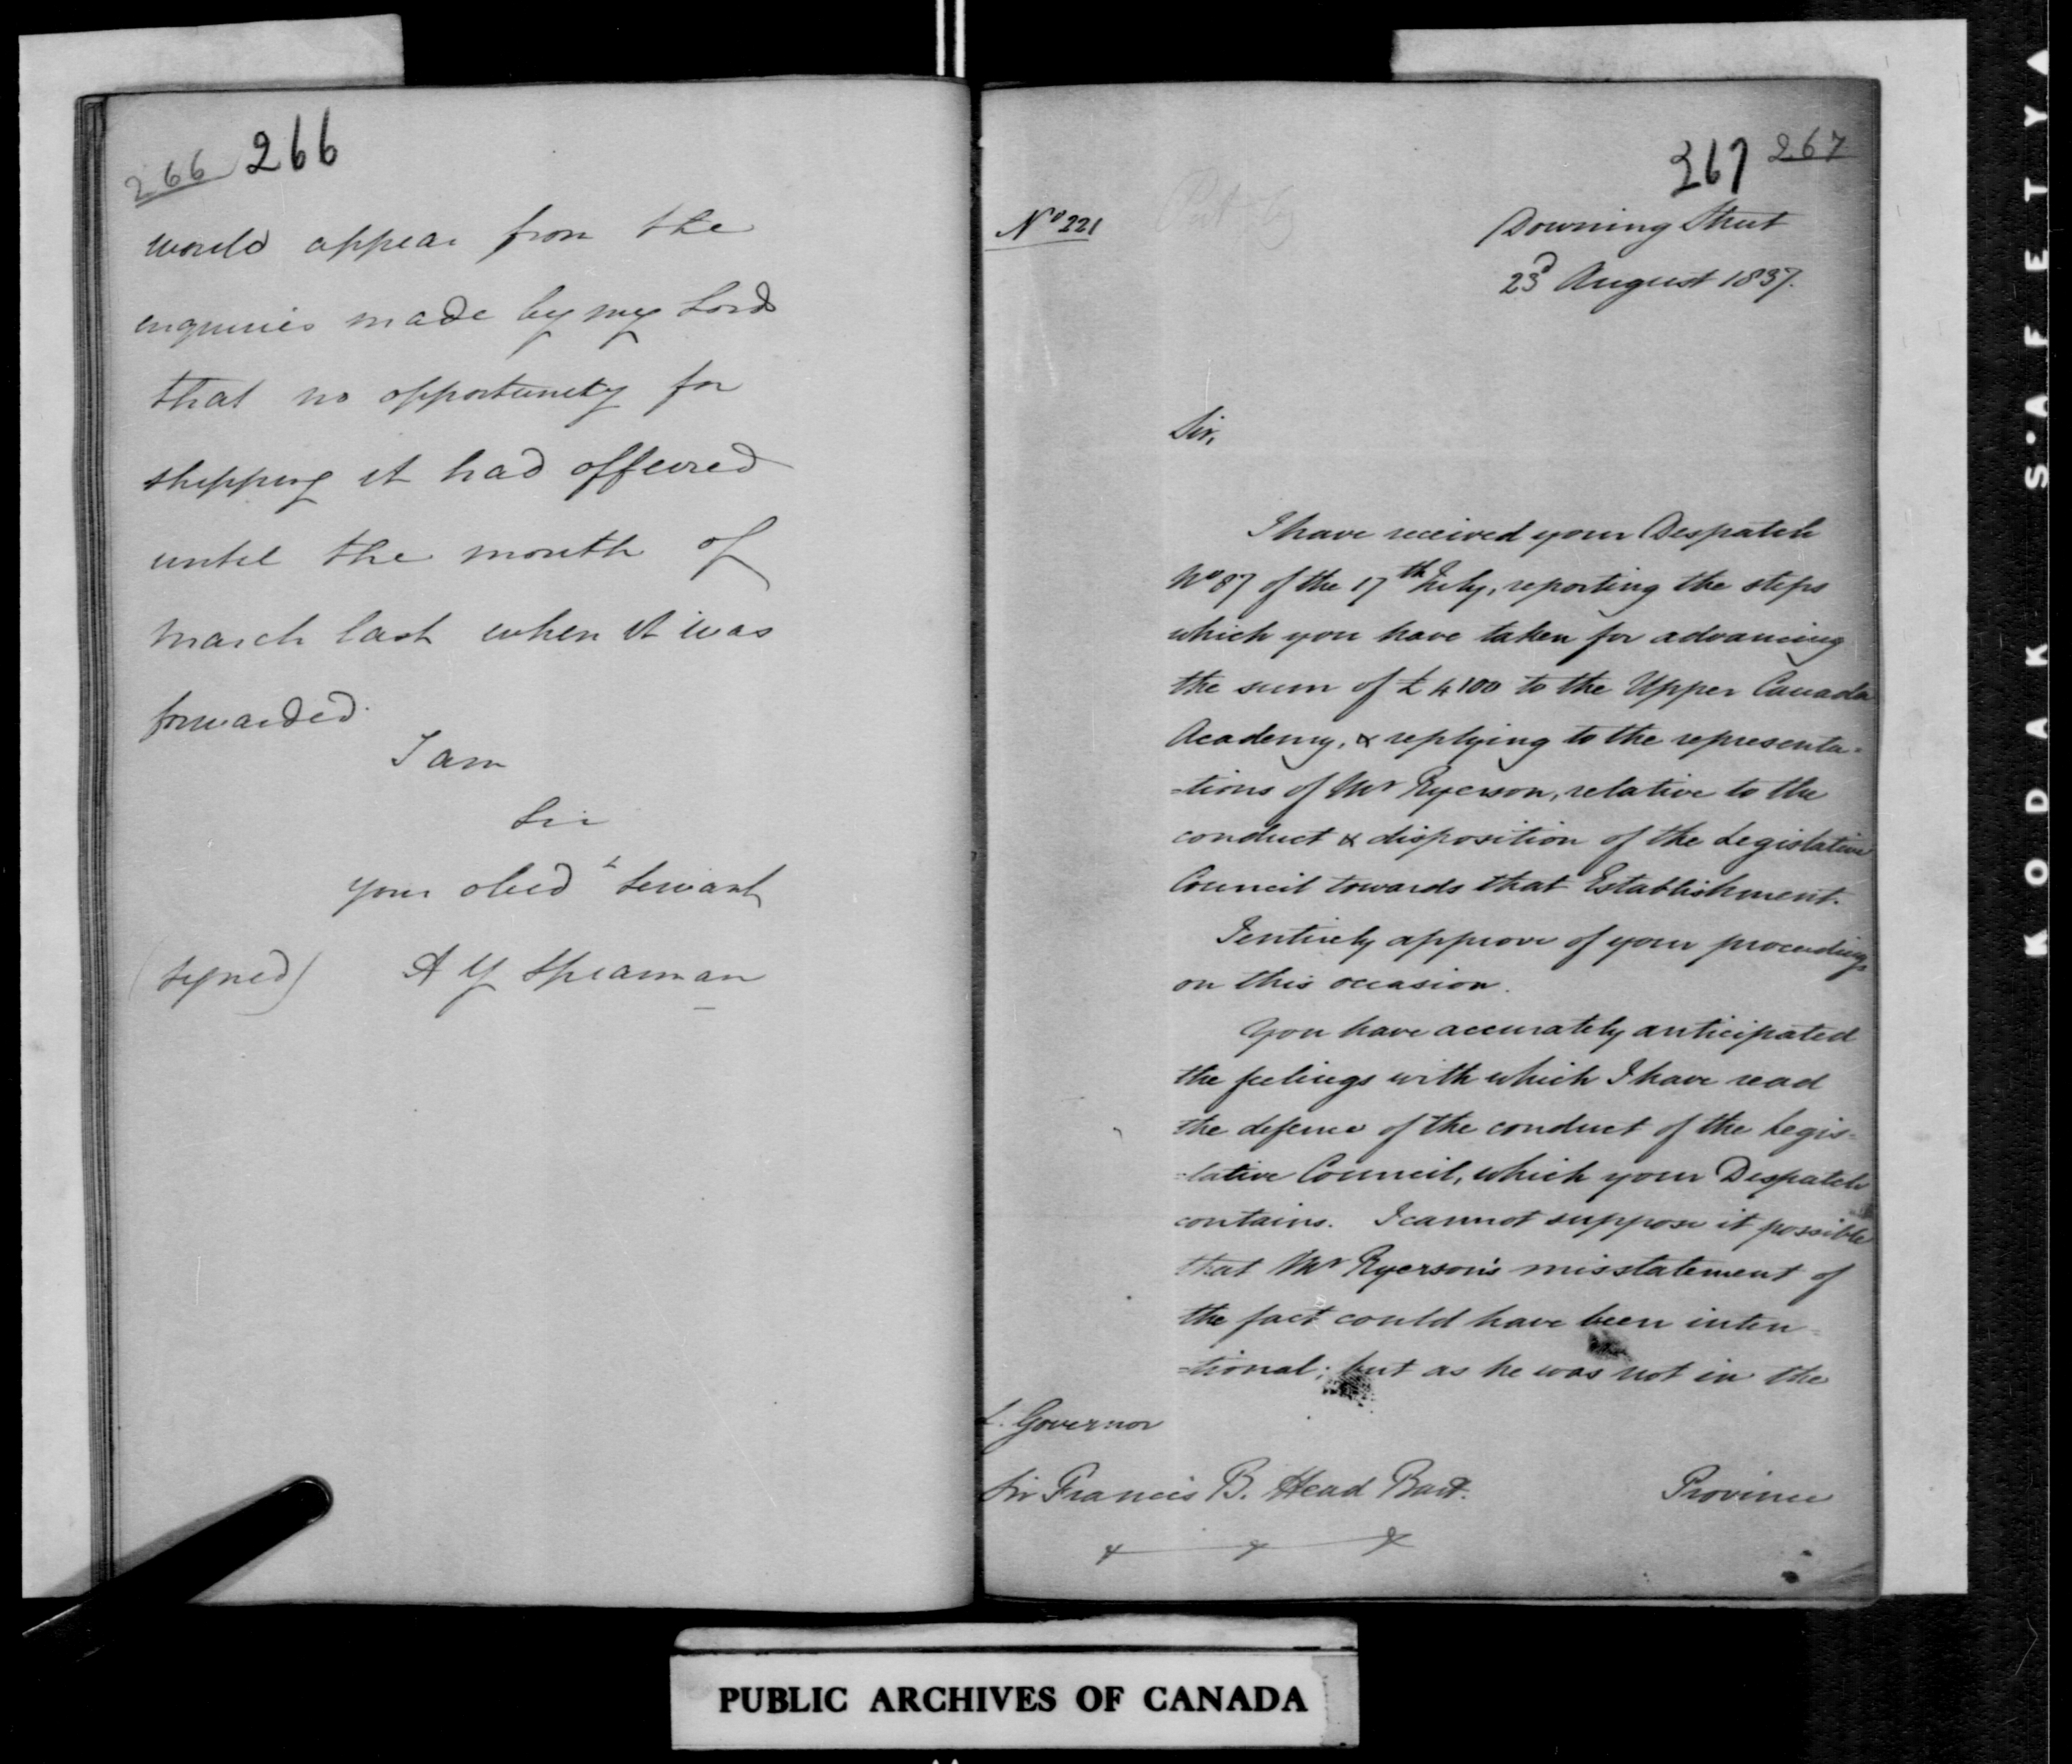 266 266
would appear from the
enquiries made by my Lords
that no opportunity for
shipping it had offered
until the month of
March last when it was
forwarded.
I am
Sir
your obed t Servant
(signed) A Y Spearman
367 267
No 221
Downing Street
23d August 1837.
Sir,
I have received your Despatch
No 87 of the 17th July, reporting the steps
which you have taken for advancing
the sum of £4100 to the Upper Canada
Academy, & replying to the representa=
=tions of Mr Ryerson, relative to the
conduct & disposition of the Legislative
Council towards that Establishment.
I entirely approve of your proceedings
on this occasion.
You have accurately anticipated
the feelings with which I have read
the defence of the conduct of the Legis=
=lative Council, which your Despatch
contains. I cannot suppose it possible
that Mr Ryerson's misstatement of
the fact could have been inten=
=tional; but as he was not in the
L. Governor
Sir Francis B. Head Bart.
Province
PUBLIC ARCHIVES OF CANADA
KODAK SAFETY